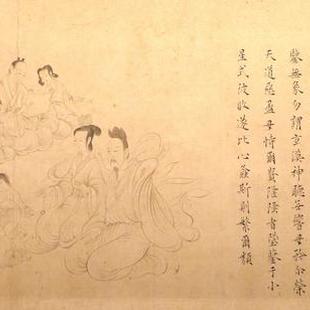 鑒無象勿謂玄漠神聽無響毋矜尒榮
天道惡盈毋恃爾貴隆隆者墜鑒于小
星戒彼攸遂比心螽斯則繁爾類